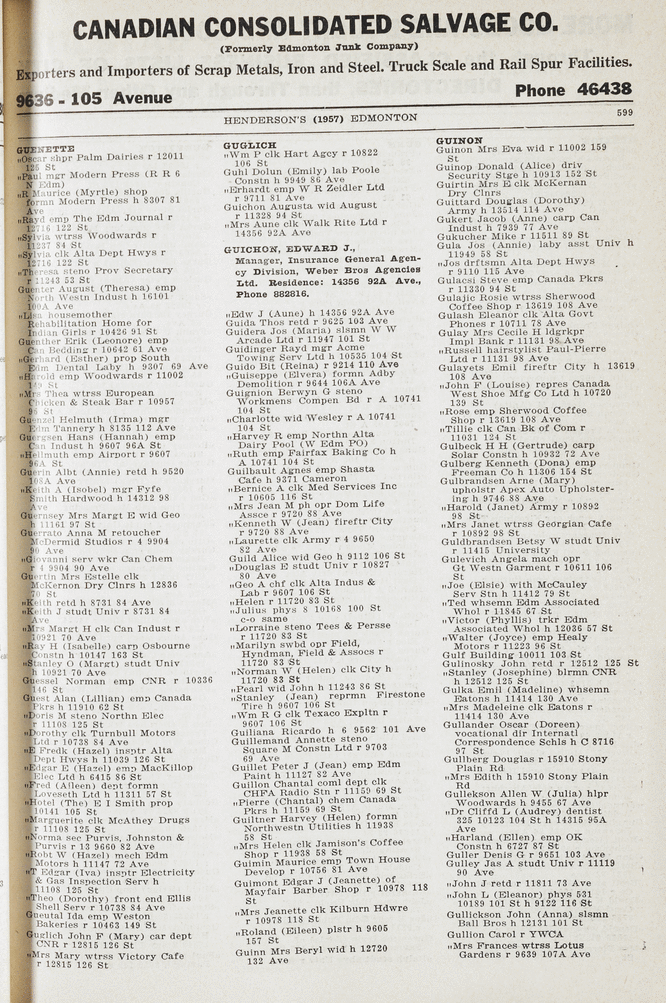 CANADIAN CONSOLIDATED SALVAGE CO.
(Formerly Edmonton Junk Company)
Exporters and Importers of Scrap Metals, Iron and Steel. Truck Scale and Rail Spur Facilities.
9636 - 105 Avenue Phone 46438
HENDERSON'S (1957) EDMONTON 599
GUENETTE
"Oscar shpr Palm Dairies r 12011
125 St
"Paul mgr Modern Press (R R 6
N Edm)
"R Maurice (Myrtle) shop
formn Modern Press h 8307 81
Ave
"Rayd emp The Edm Journal r
12716 122 St
"Sylvia wtrss Woodwards r
11237 84 St
"Sylvia clk Alta Dept Hwys r
12716 122 St
"Theresa steno Prov Secretary
r 11243 53 St
Guenter August (Theresa) emp
North Westn Indust h 16101
100A Ave
"Lisa housemother
Rehabilitation Home for
Indian Girls r 10426 91 St
Guenther Erik (Leonore) emp
Can Bedding r 10642 61 Ave
"Gerhard (Esther) prop South
Edm Dental Laby h 9307 69 Ave
"Harold emp Woodwards r 11002
St
"Mrs Thea wtrss European
Chicken & Steak Bar r 10957
95 St
Guenzel Helmuth (Irma) mgr
Edm Tannery h 8135 112 Ave
Guergsen Hans (Hannah) emp
Can Indust h 9607 96A St
"Hellmuth emp Airport r 9607
96A St
Guerin Albt (Annie) retd h 9520
108A Ave
"Keith A (Isobel) mgr Fyfe
Smith Hardwood h 14312 98
Ave
Guernsey Mrs Margt E wid Geo
h 11161 97 St
Guerrato Anna M retoucher
McDermid Studios r 4 9904
90 Ave
"Giovanni serv wkr Can Chem
r 4 9904 90 Ave
Guertin Mrs Estelle clk
McKernon Dry Clnrs h 12836
70 St
"Keith retd h 8731 84 Ave
"Keith J studt Univ r 8731 84
Ave
"Mrs Margt H clk Can Indust r
10921 70 Ave
"Ray H (Isabelle) carp Osbourne
Constn h 10147 163 St
"Stanley O (Margt) studt Univ
h 10921 70 Ave
Guessel Norman emp CNR r 10336
146 St
Guest Alan (Lillian) emp Canada
Pkrs h 11910 62 St
"Doris M steno Northn Elec
r 11108 125 St
"Dorothy clk Turnbull Motors
Ltd r 10738 84 Ave
"E Fredk (Hazel) insptr Alta
Dept Hwys h 11039 126 St
"Edgar E (Hazel) emp MacKillop
Elec Ltd h 6415 86 St
"Fred (Aileen) dept formn
Loveseth Ltd h 11311 57 St
"Hotel (The) E I Smith prop
10141 105 St
"Marguerite clk McAthey Drugs
r 11108 125 St
"Norma sec Purvis, Johnston &
Purvis r 13 9660 82 Ave
"Robt W (Hazel) mech Edm
Motors h 11147 72 Ave
"T Edgar (Iva) insptr Electricity
& Gas Inspection Serv h
11108 125 St
"Theo (Dorothy) front end Ellis
Shell Serv r 10738 84 Ave
Gueutal Ida emp Weston
Bakeries r 10463 149 St
Guglich John F (Mary) car dept
CNR r 12815 126 St
"Mrs Mary wtrss Victory Cafe
r 12815 126 St
GUGLICH
"Wm P clk Hart Agcy r 10822
106 St
Guhl Dolun (Emily) lab Poole
Constn h 9949 86 Ave
"Erhardt emp W R Zeidler Ltd
r 9711 81 Ave
Guichon Augusta wid August
r 11328 94 St
"Mrs Aune clk Walk Rite Ltd r
14356 92A Ave
GUICHON, EDWARD J.,
Manager, Insurance General Agen-
cy Division, Weber Bros Agencies
Ltd. Residence: 14356 92A Ave.,
Phone 882816.
"Edw J (Aune) h 14356 92A Ave
Guida Thos retd r 9625 103 Ave
Guidera Jos (Maria) slsmn W W
Arcade Ltd r 11947 101 St
Guidinger Rayd mgr Acme
Towing Serv Ltd h 10535 104 St
Guido Bit (Reina) r 9214 110 Ave
"Guiseppe (Elvera) formn Adby
Demolition r 9644 106A Ave
Guignion Berwyn G steno
Workmens Compen Bd r A 10741
104 St
"Charlotte wid Wesley r A 10741
104 St
"Harvey R emp Northn Alta
Dairy Pool (W Edm PO)
"Ruth emp Fairfax Baking Co h
A 10741 104 St
Guilbault Agnes emp Shasta
Cafe h 9371 Cameron
"Bernice A clk Med Services Inc
r 10605 116 St
"Mrs Jean M ph opr Dom Life
Assce r 9720 88 Ave
"Kenneth W (Jean) fireftr City
r 9720 88 Ave
"Laurette clk Army r 4 9650
82 Ave
Guild Alice wid Geo h 9112 106 St
"Douglas E studt Univ r 10827
80 Ave
"Geo A chf clk Alta Indus &
Lab r 9607 106 St
"Helen r 11720 83 St
"Julius phys 8 10168 100 St
c-o same
"Lorraine steno Tees & Persse
r 11720 83 St
"Marilyn swbd opr Field,
Hyndman, Field & Assocs r
11720 83 St
"Norman W (Helen) clk City h
11720 83 St
"Pearl wid John h 11243 86 St
"Stanley (Jean) reprmn Firestone
Tire h 9607 106 St
"Wm R G clk Texaco Expltn r
9607 106 St
Guiliana Ricardo h 6 9562 101 Ave
Guillemand Annette steno
Square M Constn Ltd r 9703
69 Ave
Guillet Peter J (Jean) emp Edm
Paint h 11127 82 Ave
Guillon Chantal coml dept clk
CHFA Radio Stn r 11159 69 St
"Pierre (Chantal) chem Canada
Pkrs h 11159 69 St
Guiltner Harvey (Helen) formn
Northwestn Utilities h 11938
58 St
"Mrs Helen clk Jamison's Coffee
Shop r 11938 58 St
Guimin Maurice emp Town House
Develop r 10756 81 Ave
Guimont Edgar J (Jeanette) of
Mayfair Barber Shop r 10978 118
St
"Mrs Jeanette clk Kilburn Hdwre
r 10978 118 St
"Roland (Eileen) plstr h 9605
157 St
Guinn Mrs Beryl wid h 12720
132 Ave
GUINON
Guinon Mrs Eva wid r 11002 159
St
Guinop Donald (Alice) driv
Security Stge h 10913 152 St
Guirtin Mrs E clk McKernan
Dry Clnrs
Guittard Douglas (Dorothy)
Army h 13514 114 Ave
Gukert Jacob (Anne) carp Can
Indust h 7939 77 Ave
Gukucher Mike r 11511 89 St
Gula Jos (Annie) laby asst Univ h
11949 58 St
"Jos drftsmn Alta Dept Hwys
r 9110 115 Ave
Gulacsi Steve emp Canada Pkrs
r 11330 94 St
Gulajic Rosie wtrss Sherwood
Coffee Shop r 13619 108 Ave
Gulash Eleanor clk Alta Govt
Phones r 10711 78 Ave
Gulay Mrs Cecile H ldgrkpr
Impl Bank r 11131 98 Ave
"Russell hairstylist Paul-Pierre
Ltd r 11131 98 Ave
Gulayets Emil fireftr City h 13619
108 Ave
"John F (Louise) repres Canada
West Shoe Mfg Co Ltd h 10720
139 St
"Rose emp Sherwood Coffee
Shop r 13619 108 Ave
"Tillie clk Can Bk of Com r
11031 124 St
Gulbeck H H (Gertrude) carp
Constn h 10932 72 Ave
Gulberg Kenneth (Dona) emp
Freeman Co h 11306 154 St
Gulbrandsen Arne (Mary)
upholstr Apex Auto Upholster-
ing h 9746 88 Ave
"Harold (Janet) Army r 10892
98 St
"Mrs Janet wtrss Georgian Cafe
r 10892 98 St
Guldbrandsen Betsy W studt Univ
r 11415 University
Gulevich Angela mach opr
Gt Westn Garment r 10611 106
St
"Joe (Elsie) with McCauley
Serv Stn h 11412 79 St
"Ted whsemn Edm Associated
Whol r 11845 67 St
"Victor (Phyllis) trkr Edm
Associated Whol h 12036 57 St
"Walter (Joyce) emp Healy
Motors r 11223 96 St
Gulf Building 10011 103 St
Gulinosky John retd r 12512 125 St
"Stanley (Josephine) blrmn CNR
h 12512 125 St
Gulka Emil (Madeline) whsemn
Eatons h 11414 130 Ave
"Mrs Madeleine clk Eatons r
11414 130 Ave
Gullander Oscar (Doreen)
vocational dir Internatl
Correspondence Schls h C 8716
97 St
Gullberg Douglas r 15910 Stony
Plain Rd
"Mrs Edith h 15910 Stony Plain
Rd
Gullekson Allen W (Julia) hlpr
Woodwards h 9455 67 Ave
"Dr Cliffd L (Audrey) dentist
325 10123 104 St h 14315 95A
Ave
"Harland (Ellen) emp OK
Constn h 6727 87 St
Guller Denis G r 9651 103 Ave
Gulley Jas A studt Univ r 11119
90 Ave
"John J retd r 11811 73 Ave
"John L (Eleanor) phys 531
10189 101 St h 9122 116 St
Gullickson John (Anna) slsmn
Ball Bros h 12131 101 St
Gullion Carol r YWCA
"Mrs Frances wtrss Lotus
Gardens r 9639 107A Ave